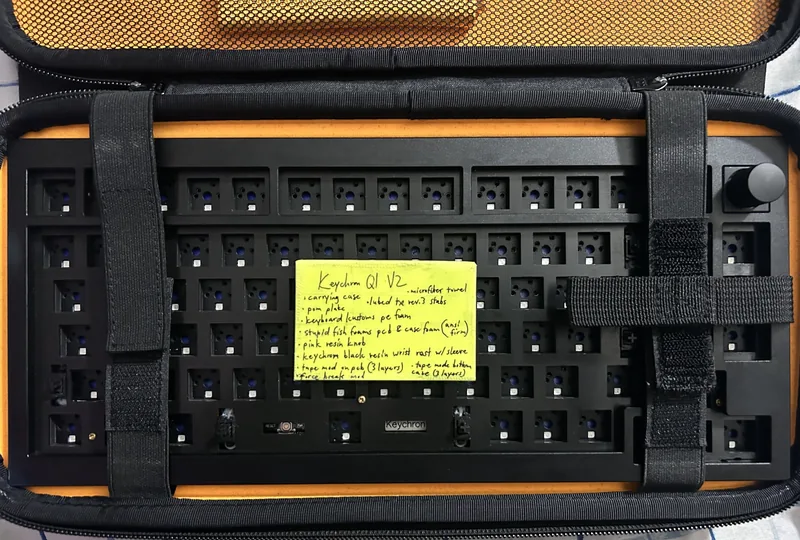 Keychrm Q1 V2
• microfiber towel
• carrying case • lubed tx rev.3 stabs
• pom plate
• keyboard customs pe foam
• stupid fish foams pcb & case foam (ansi firm)
• pink resin knob
• keychrom black resin wrist rest w/ sleeve
• tape mod on pcb (3 layers) • tape mode bottom case (3 layers)
• force break mod
Keychron